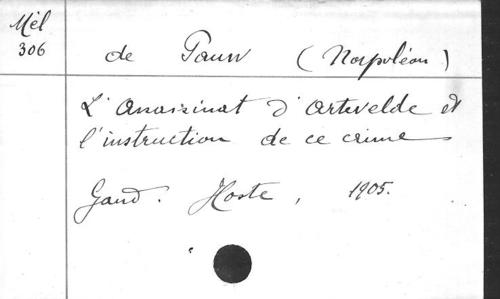 Mèl
306
de Pauw (Napoléon)
L'Assassinat d'Artevelde et
l'instruction de ce crime
Gand. Hoste, 1905.